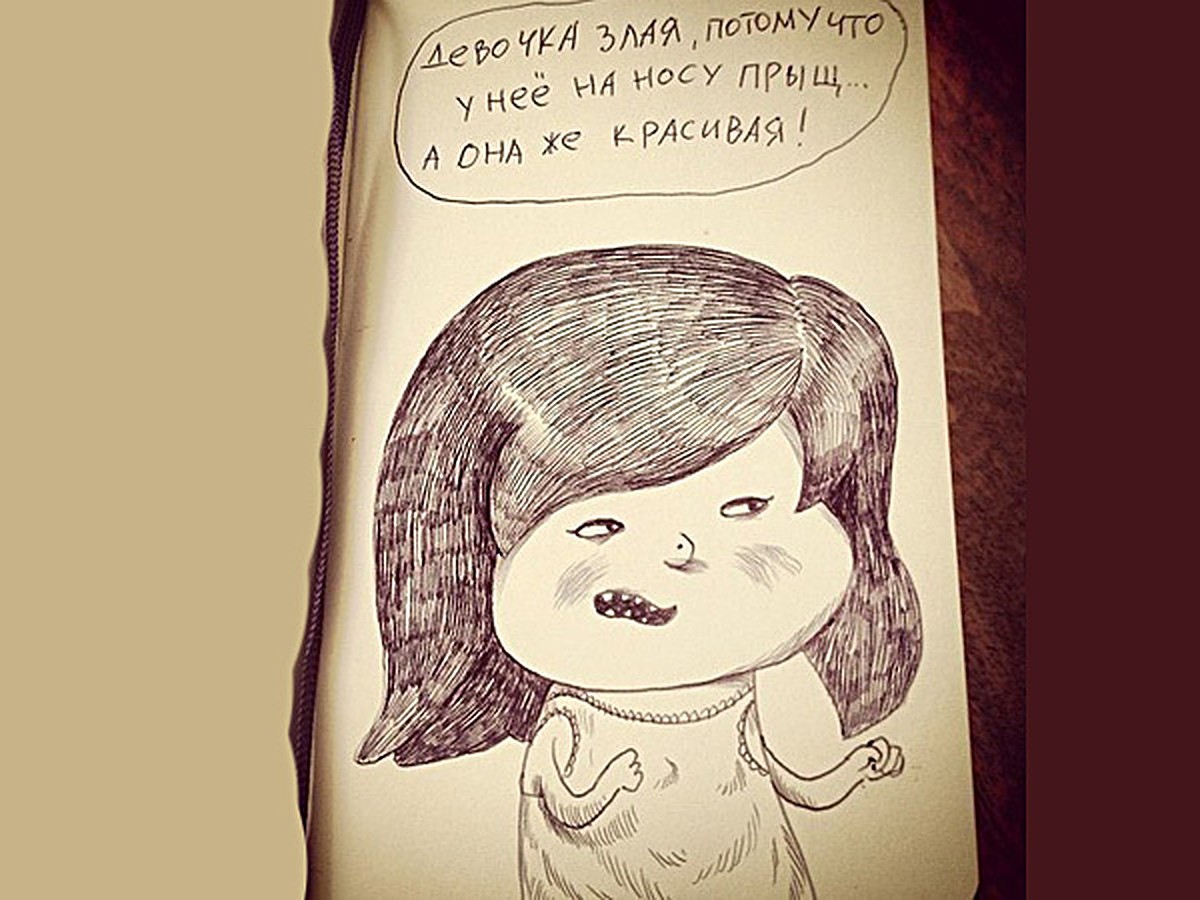 ДЕВОЧКА ЗЛАЯ, ПОТОМУ ЧТО
У НЕЁ НА НОСУ ПРЫЩ...
А ОНА ЖЕ КРАСИВАЯ!